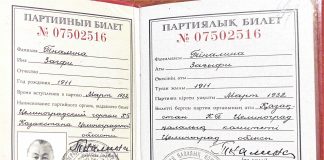 ПАРТИЙНЫЙ БИЛЕТ
№ 07502516
Фамилия Тналина
Имя Загфи
Отчество
Год рождения 1911
Время вступления в партию Март 1932
Наименование партийного органа, выдавшего билет
Целиноградский горком КП
Казахстана Целиноградской
области
ПАРТИЯЛЫҚ БИЛЕТ
№ 07502516
Фамилиясы Тналина
Аты
Әкесінің аты
Туған жылы 1911
Партияға кірген уақыты Март 1932
Билет берген партия органының аты Қазақ
стан КП Целиноград
қалалық комитеті
Целиноград